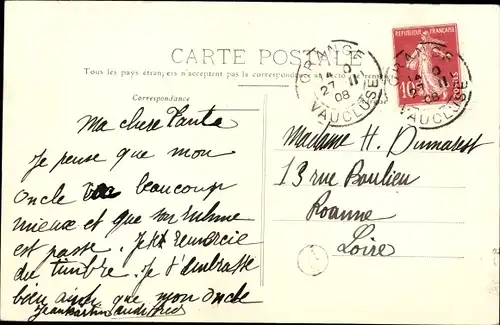 CARTE POSTALE
Tous les pays étrangers n'acceptent pas la correspondance au recto
Correspondance
REPUBLIQUE FRANÇAISE
10c
POSTES
ORANGE
27 11
08
VAUCLUSE
ORANGE
27 11
08
VAUCLUSE
Ma chere Tante
Je pense que mon
Oncle va beaucoup
mieux et que son rhume
est passé. Je te remercie
du timbre. Je t'embrasse
bien ainsi que mon oncle
Jean Martin
Madame H. Dumarest
13 rue Beaulieu
Roanne
Loire